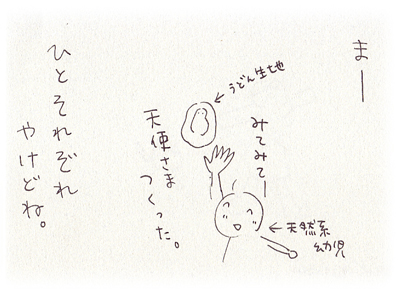 まー
みてみてー
←うどん生地
天使さま
つくった。
←天然系
幼児
ひとそれぞれ
やけどね。